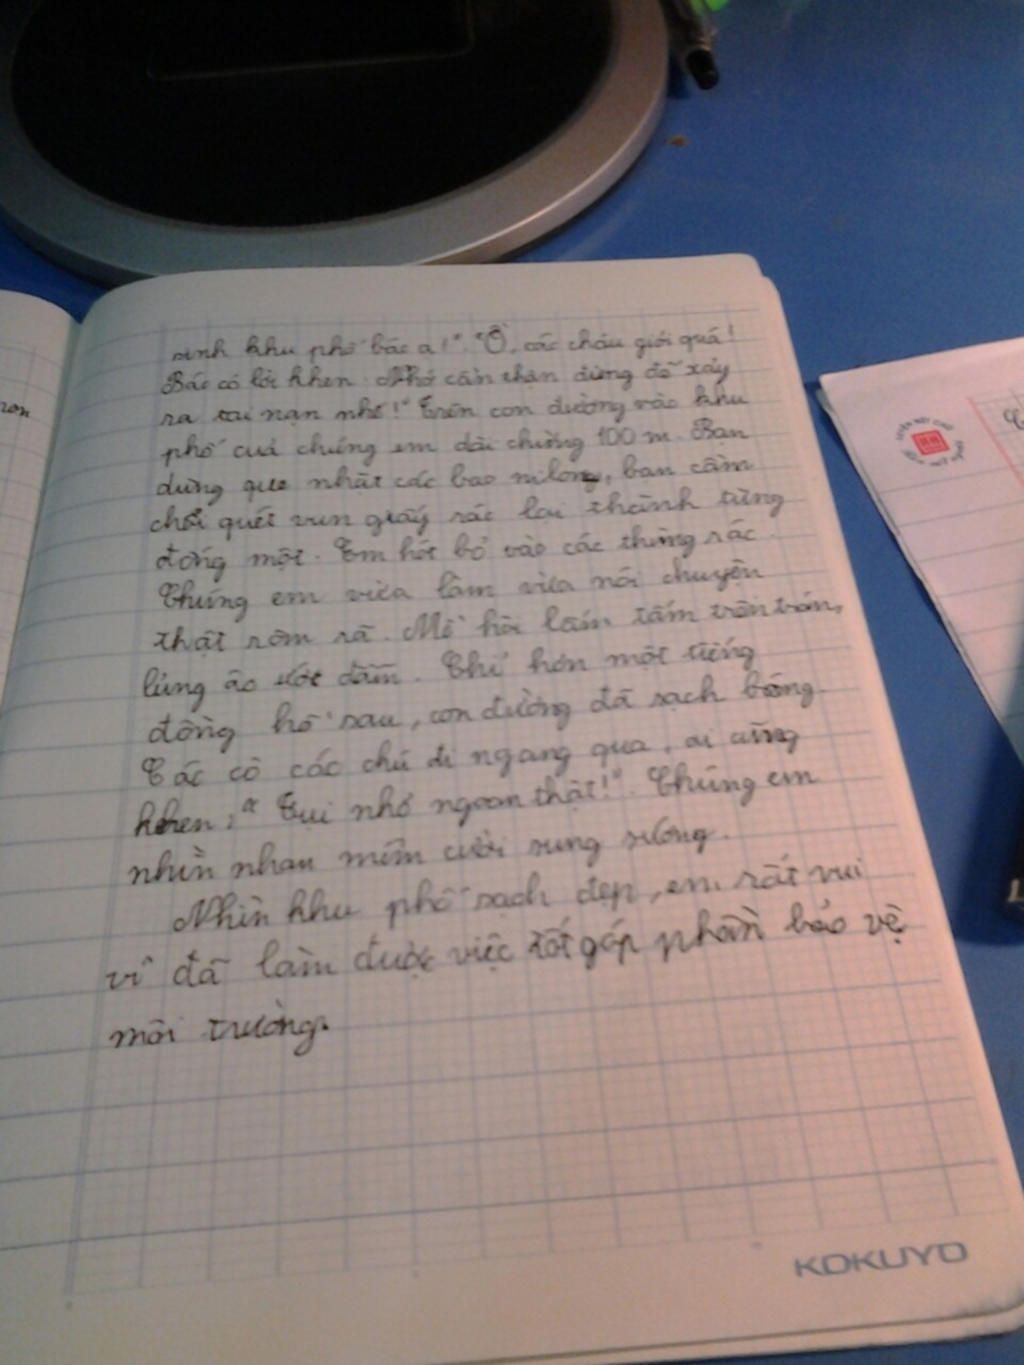 sinh khu phố bác ạ!". "Ồ, các cháu giỏi quá!
Bác có lời khen. Nhớ cẩn thận đừng để xảy
ra tai nạn nhé!" Trên con đường vào khu
phố của chúng em dài chừng 100 m. Bạn
dùng que nhặt các bao nilong, bạn cầm
chổi quét vun giấy rác lại thành từng
đống một. Em hốt bỏ vào các thùng rác.
Chúng em vừa làm vừa nói chuyện
thật rôm rả. Mồ hôi lấm tấm trên trán,
lưng áo ướt đẫm. Chỉ hơn một tiếng
đồng hồ sau, con đường đã sạch bóng.
Các cô các chú đi ngang qua, ai cũng
khen: "Tụi nhỏ ngoan thật!". Chúng em
nhìn nhau mỉm cười sung sướng.
Nhìn khu phố sạch đẹp, em rất vui
vì đã làm được việc tốt góp phần bảo vệ
môi trường.
KOKUYO